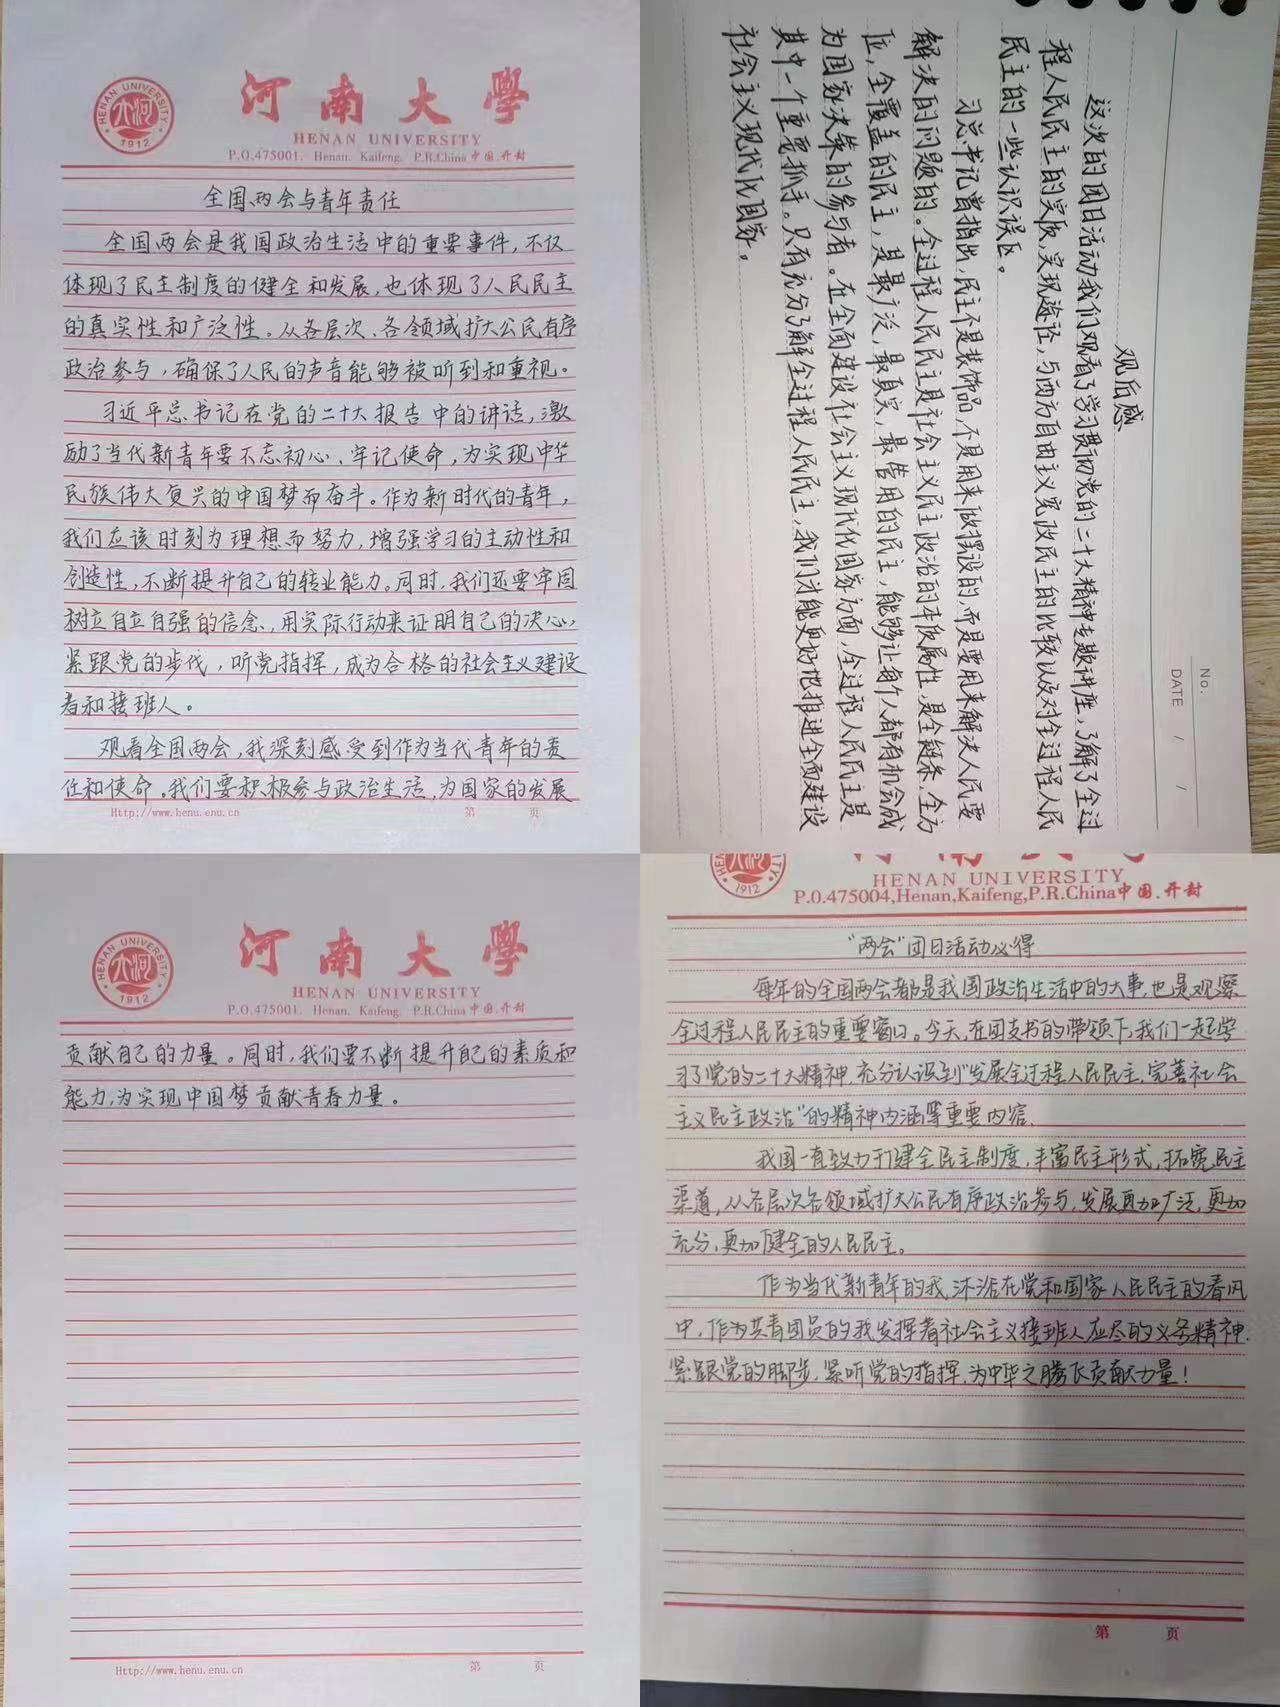 河南大學
HENAN UNIVERSITY
1912
HENAN UNIVERSITY
P.O.475001. Henan. Kaifeng. P.R.China 中国.开封
全国两会与青年责任
全国两会是我国政治生活中的重要事件,不仅
体现了民主制度的健全和发展,也体现了人民民主
的真实性和广泛性。从各层次、各领域扩大公民有序
政治参与,确保了人民的声音能够被听到和重视。
习近平总书记在党的二十大报告中的讲话,激
励了当代新青年要不忘初心、牢记使命,为实现中华
民族伟大复兴的中国梦而奋斗。作为新时代的青年,
我们应该时刻为理想而努力,增强学习的主动性和
创造性,不断提升自己的转业能力。同时,我们还要牢固
树立自立自强的信念,用实际行动来证明自己的决心,
紧跟党的步伐,听党指挥,成为合格的社会主义建设
者和接班人。
观看全国两会,我深刻感受到作为当代青年的责
任和使命。我们要积极参与政治生活,为国家的发展
Http://www.henu.enu.cn
第 页
No.
DATE / /
观后感
这次的团日活动我们观看了学习贯彻党的二十大精神专题讲座,了解了全过
程人民民主的实质,实现途径,与西方自由主义宪政民主的比较以及对全过程人民
民主的一些认识误区。
习总书记曾指出,民主不是装饰品,不是用来做摆设的,而是要用来解决人民要
解决的问题的。全过程人民民主是社会主义民主政治的本质属性,是全链条、全方
位,全覆盖的民主,是最广泛,最真实,最管用的民主,能够让每个人都有机会成
为国家决策的参与者。在全面建设社会主义现代化国家方面,全过程人民民主是
其中一个重要抓手。只有充分了解全过程人民民主,我们才能更好地推进全面建设
社会主义现代化国家。
河南大學
HENAN UNIVERSITY
1912
HENAN UNIVERSITY
P.O.475001. Henan. Kaifeng. P.R.China 中国.开封
贡献自己的力量。同时,我们要不断提升自己的素质和
能力,为实现中国梦贡献青春力量。
Http://www.henu.enu.cn
第 页
1912
HENAN UNIVERSITY
P.O.475004,Henan,Kaifeng,P.R.China中国.开封
“两会”团日活动心得
每年的全国两会都是我国政治生活中的大事,也是观察
全过程人民民主的重要窗口。今天,在团支书的带领下,我们一起学
习了党的二十大精神,充分认识到“发展全过程人民民主,完善社会
主义民主政治”的精神内涵等重要内容.
我国一直致力于健全民主制度,丰富民主形式,拓宽民主
渠道,从各层次各领域扩大公民有序政治参与,发展更加广泛,更加
充分,更加健全的人民民主。
作为当代新青年的我,沐浴在党和国家人民民主的春风
中,作为共青团员的我发挥着社会主义接班人应尽的义务精神.
紧跟党的脚步,紧听党的指挥,为中华之腾飞贡献力量!
第 页